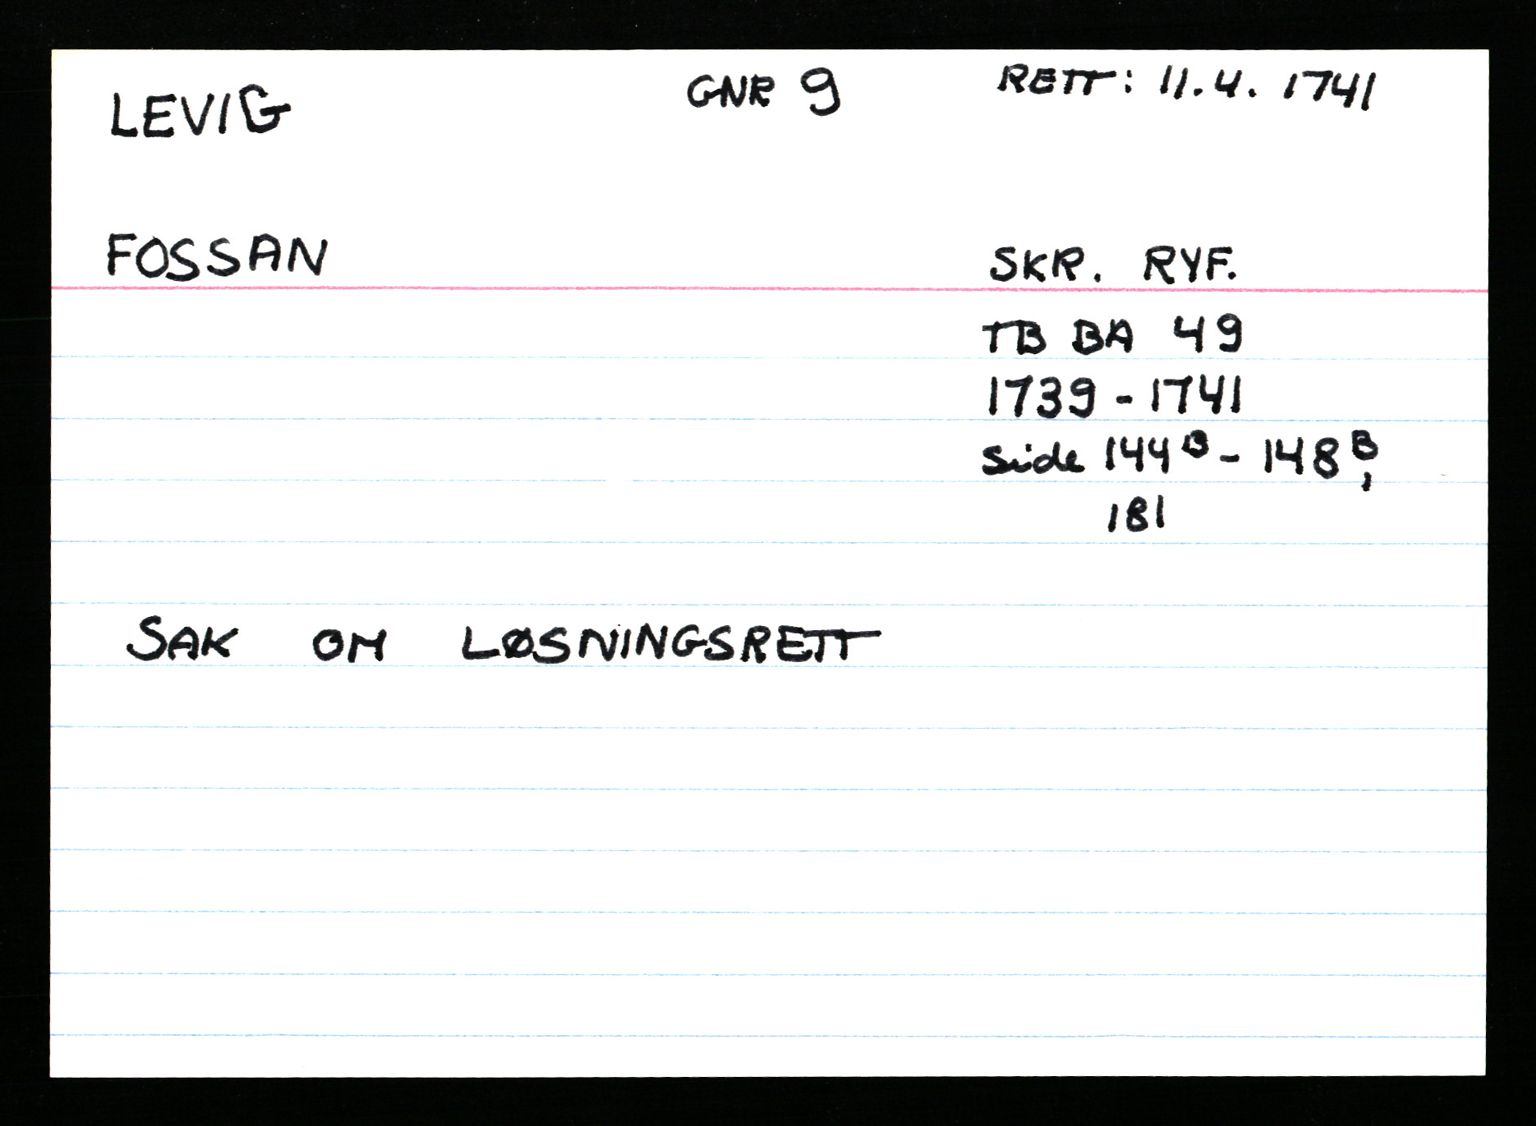 LEVIG GNR 9 RETT: 11.4. 1741
FOSSAN SKR. RYF.
TB BA 49
1739 - 1741
side 144B - 148B,
181
SAK OM LØSNINGSRETT